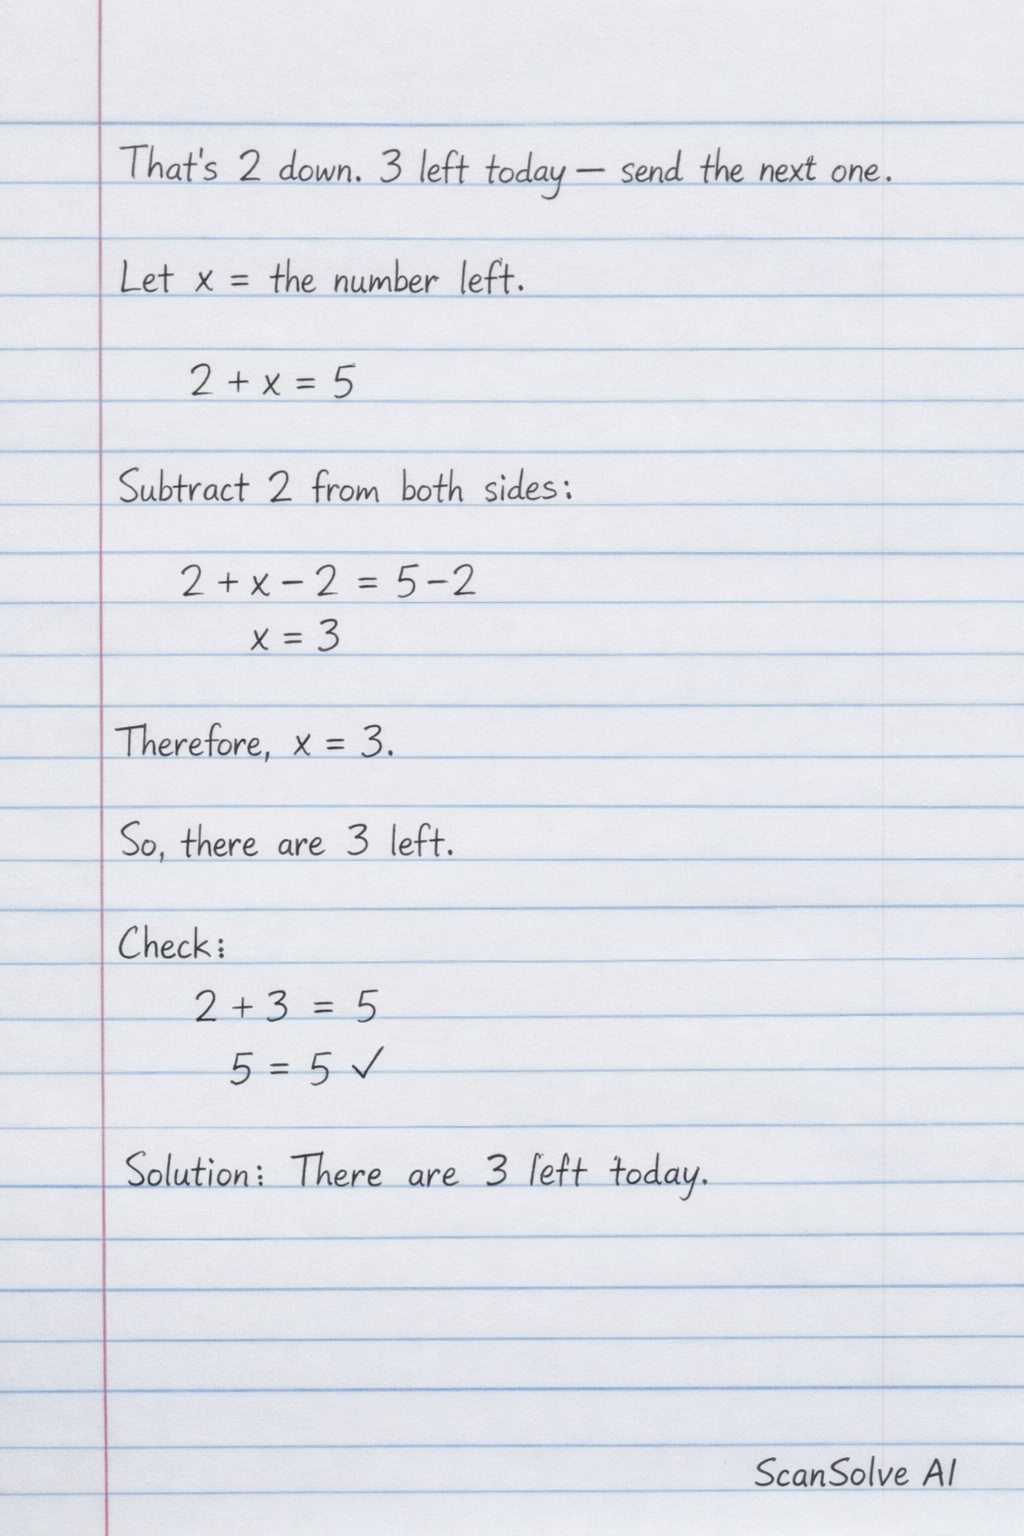 That's 2 down. 3 left today — send the next one.
Let x = the number left.
2 + x = 5
Subtract 2 from both sides:
2 + x − 2 = 5 − 2
x = 3
Therefore, x = 3.
So, there are 3 left.
Check:
2 + 3 = 5
5 = 5 ✓
Solution: There are 3 left today.
ScanSolve AI